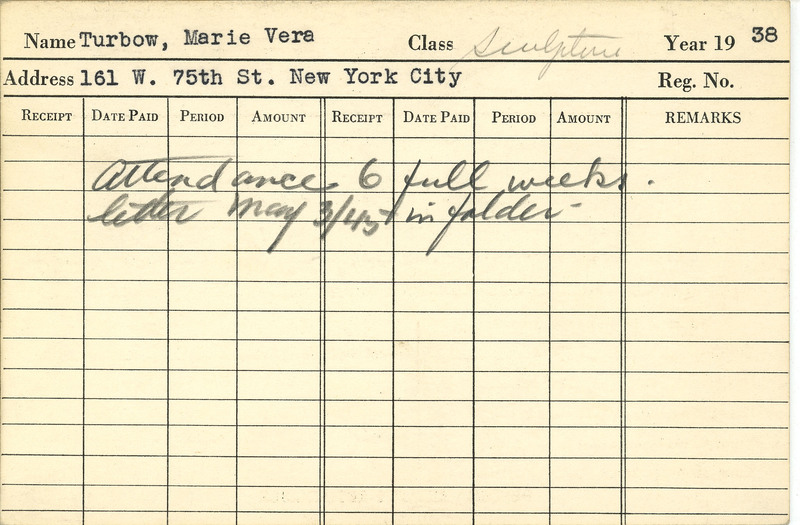 Name Turbow, Marie Vera Class Sculpture Year 19 38
Address 161 W. 75th St. New York City Reg. No.
RECEIPT DATE PAID PERIOD AMOUNT RECEIPT DATE PAID PERIOD AMOUNT REMARKS
Attendance 6 full weeks.
letter May 3/45 in folder-